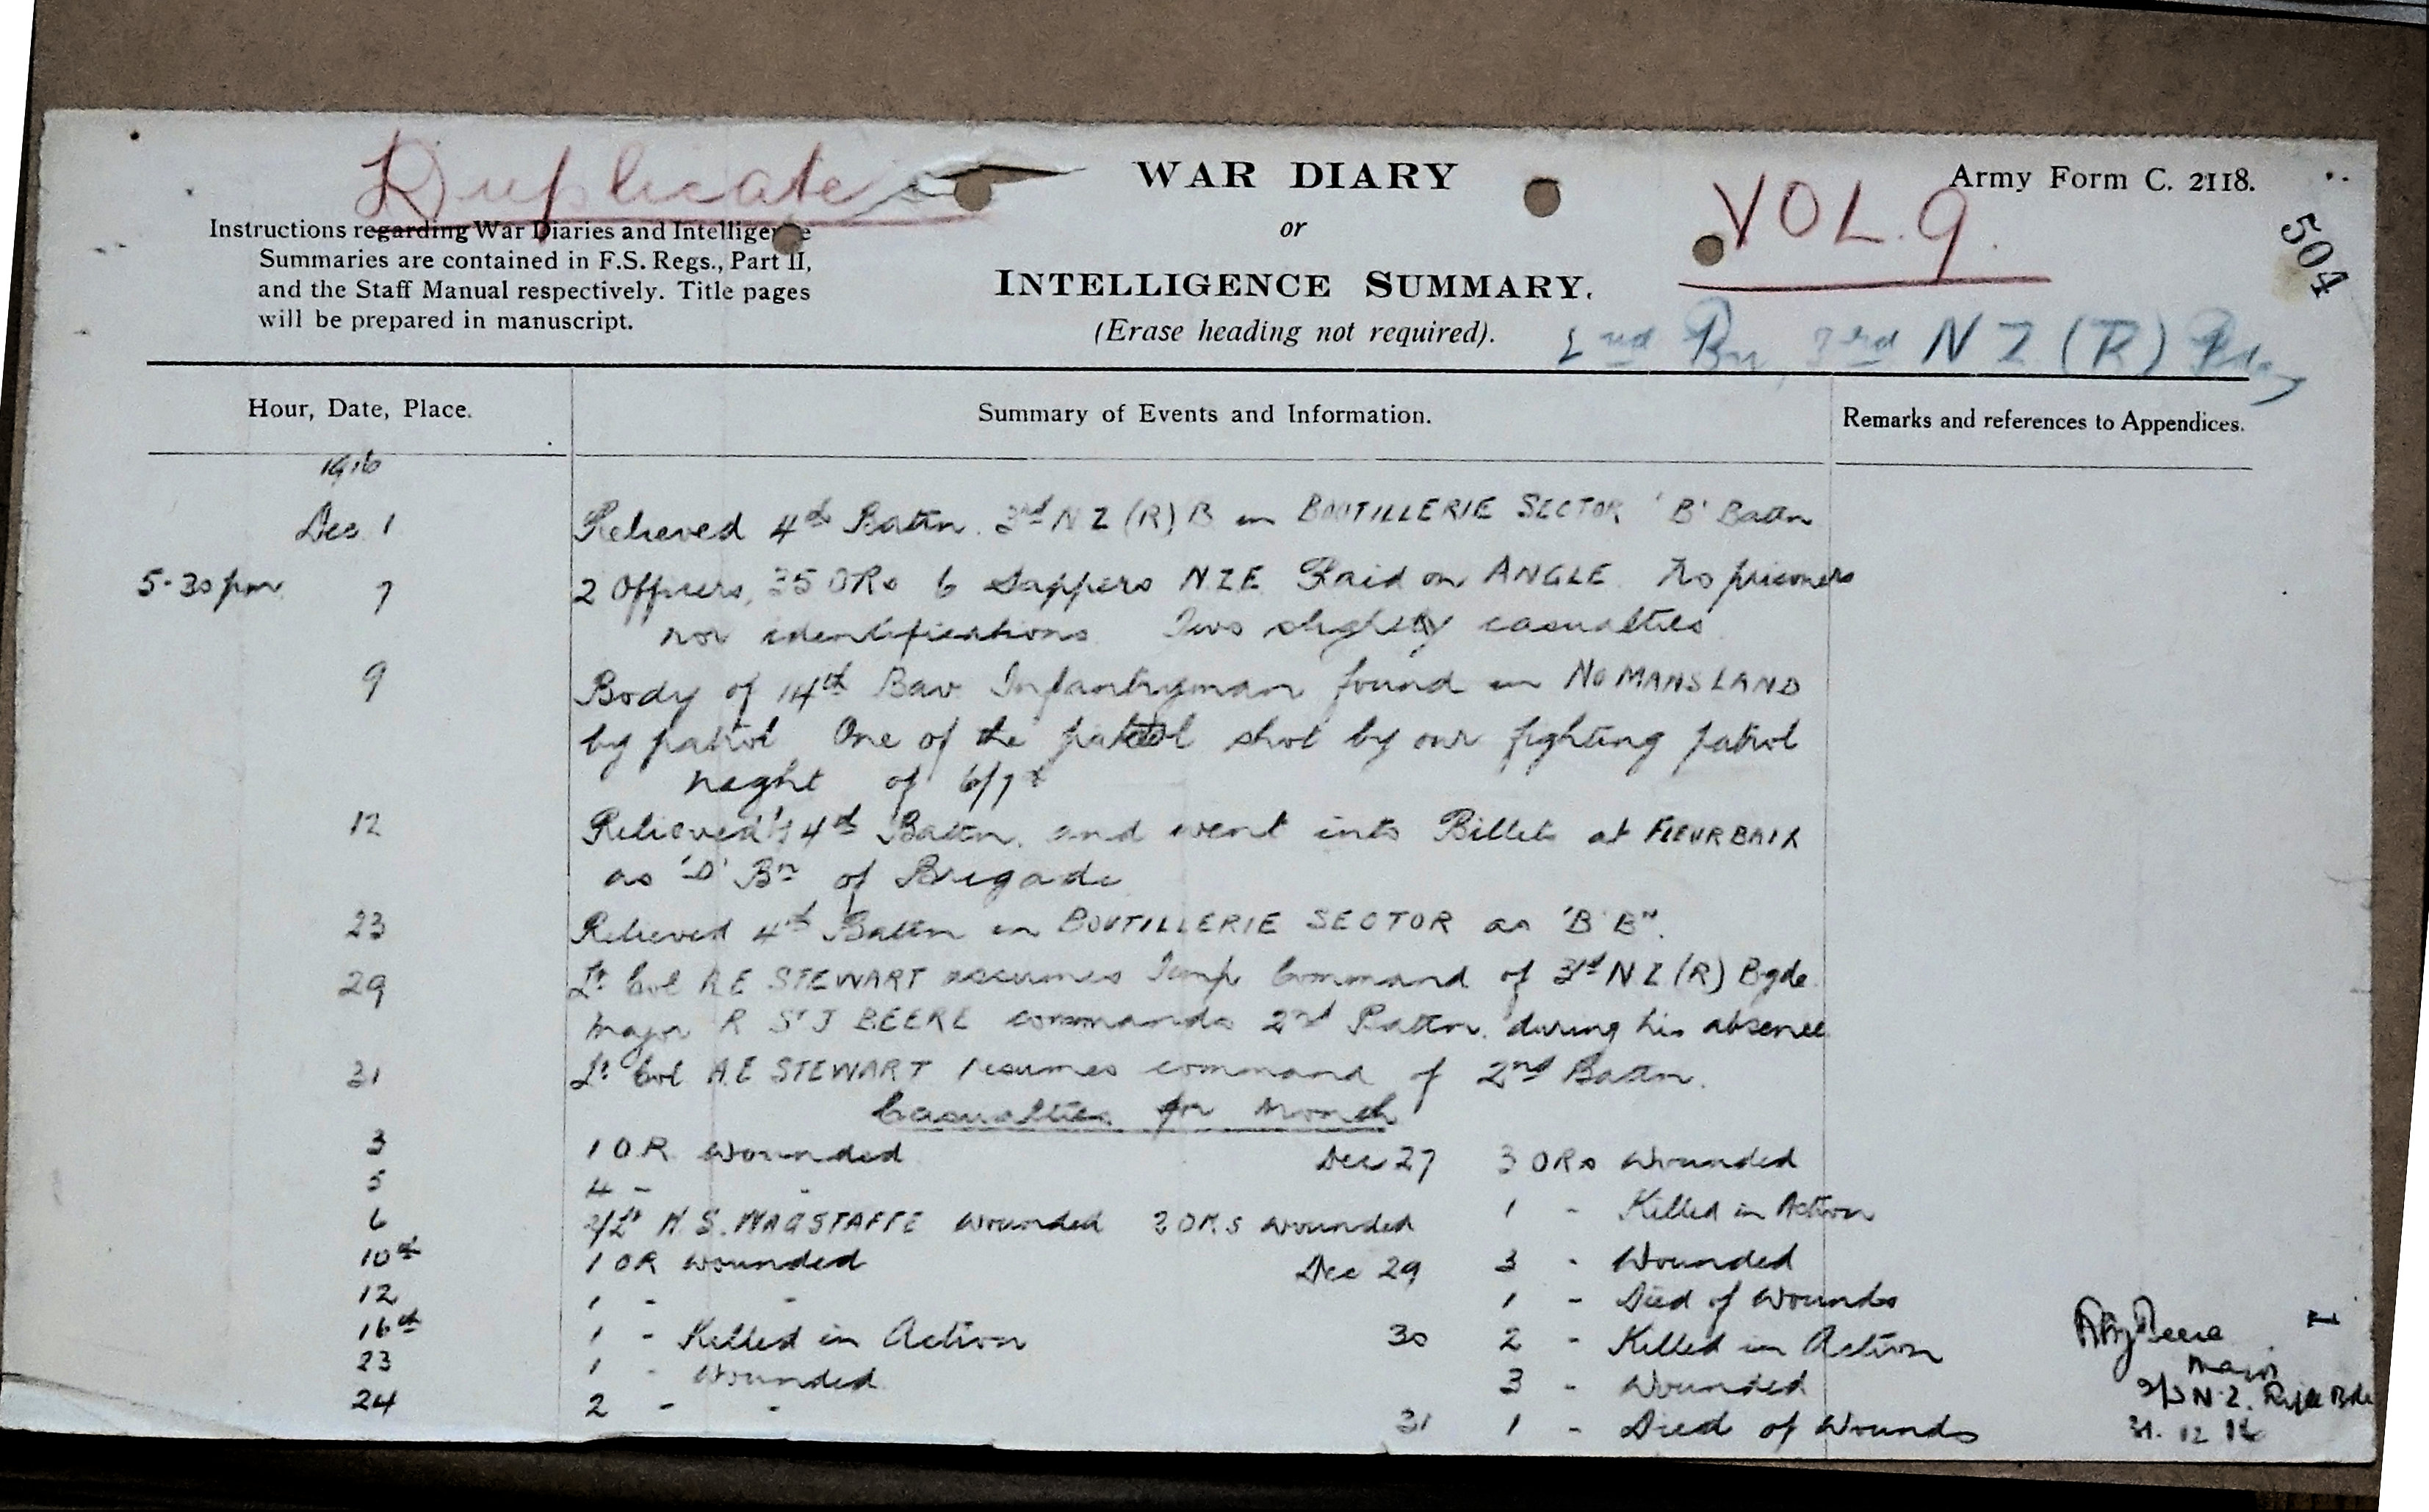 Duplicate
WAR DIARY
or
INTELLIGENCE SUMMARY.
(Erase heading not required).
Army Form C. 2118.
VOL. 9.
504
Instructions regarding War Diaries and Intelligence
Summaries are contained in F.S. Regs., Part II,
and the Staff Manual respectively. Title pages
will be prepared in manuscript.
2nd Bn, 3rd N Z (R) Bde
Hour, Date, Place.
Summary of Events and Information.
Remarks and references to Appendices.
1916
Dec 1 Relieved 4th Battn. 3rd N Z (R) B in BOUTILLERIE SECTOR 'B' Battn
5-30 pm 7 2 Officers, 35 ORs 6 Sappers N.Z.E. Raid on ANGLE. No prisoners
nor identifications. Two slightly casualties
9 Body of 14th Bav. Infantryman found in NO MANS LAND
by patrol One of the patrol shot by our fighting patrol
night of 6/7th
12 Relieved by 4th Battn. and went into Billets at FLEURBAIX
as 'D' Bn of Brigade
23 Relieved 4th Battn in BOUTILLERIE SECTOR as 'B' Bn.
29 Lt Col A E STEWART assumes Temp Command of 3rd N Z (R) Bgde.
Major R St J BEERE commands 2nd Battn. during his absence
31 Lt Col A.E STEWART resumes command of 2nd Battn.
Casualties for month
3 1 O.R. wounded
5 4 - -
6 2/Lt H. S. WAGSTAFFE wounded 2 ORs wounded
10th 1 OR wounded
12 1 - -
16th 1 - Killed in Action
23 1 - Wounded
24 2 - -
Dec 27 3 ORs Wounded
1 - Killed in Action
Dec 29 3 - Wounded
1 - Died of Wounds
30 2 - Killed in Action
3 - Wounded
31 1 - Died of Wounds
Beere
Major
2/3 N.Z. Rifle Bde
31.12.16